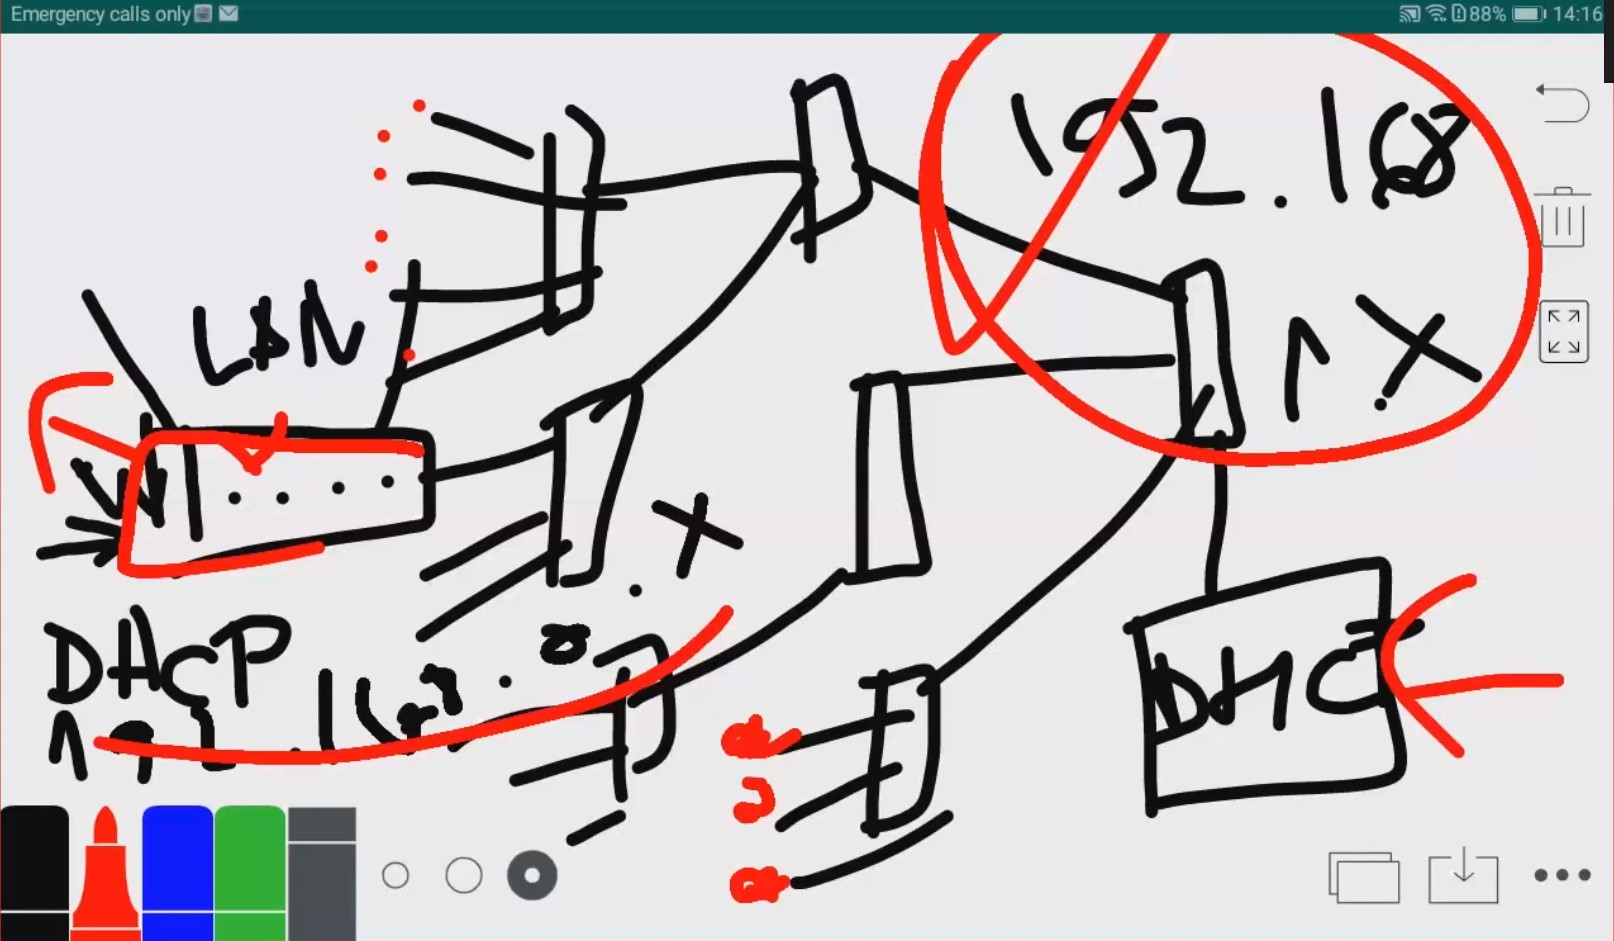 Emergency calls only
88% 14:16
192.168
1X
LAN
W
X
DHCP
192.168.0.
DHC